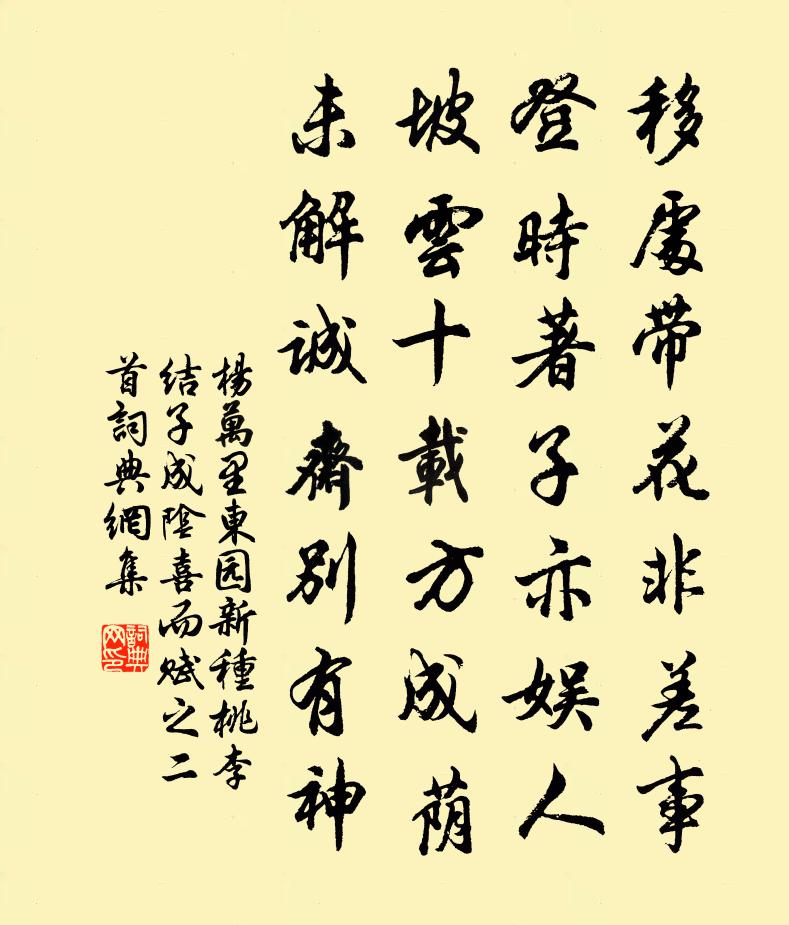 移處带花非差事
登時著子亦娱人
坡雲十載方成荫
未解诚齋别有神
楊萬里東园新種桃李
结子成陰喜而赋之二
首詞典網集
詞典
网印